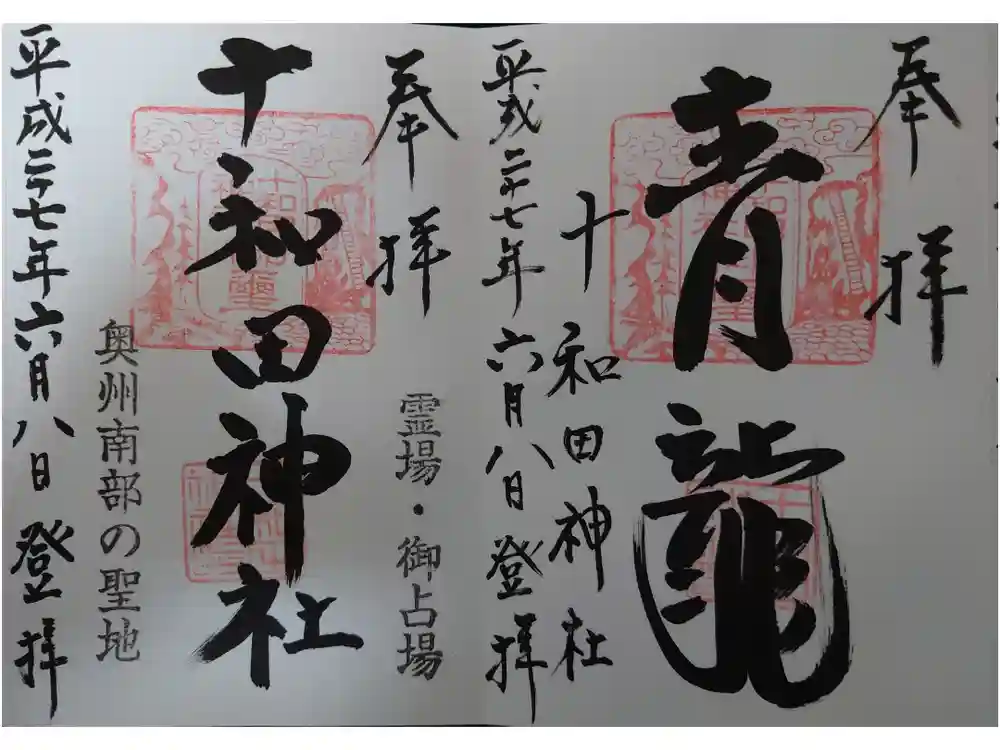 奉拝
青龍
十和田神社
平成二十七年六月八日登拝
奉拝
霊場・御占場
十和田神社
奥州南部の聖地
平成二十七年六月八日登拝